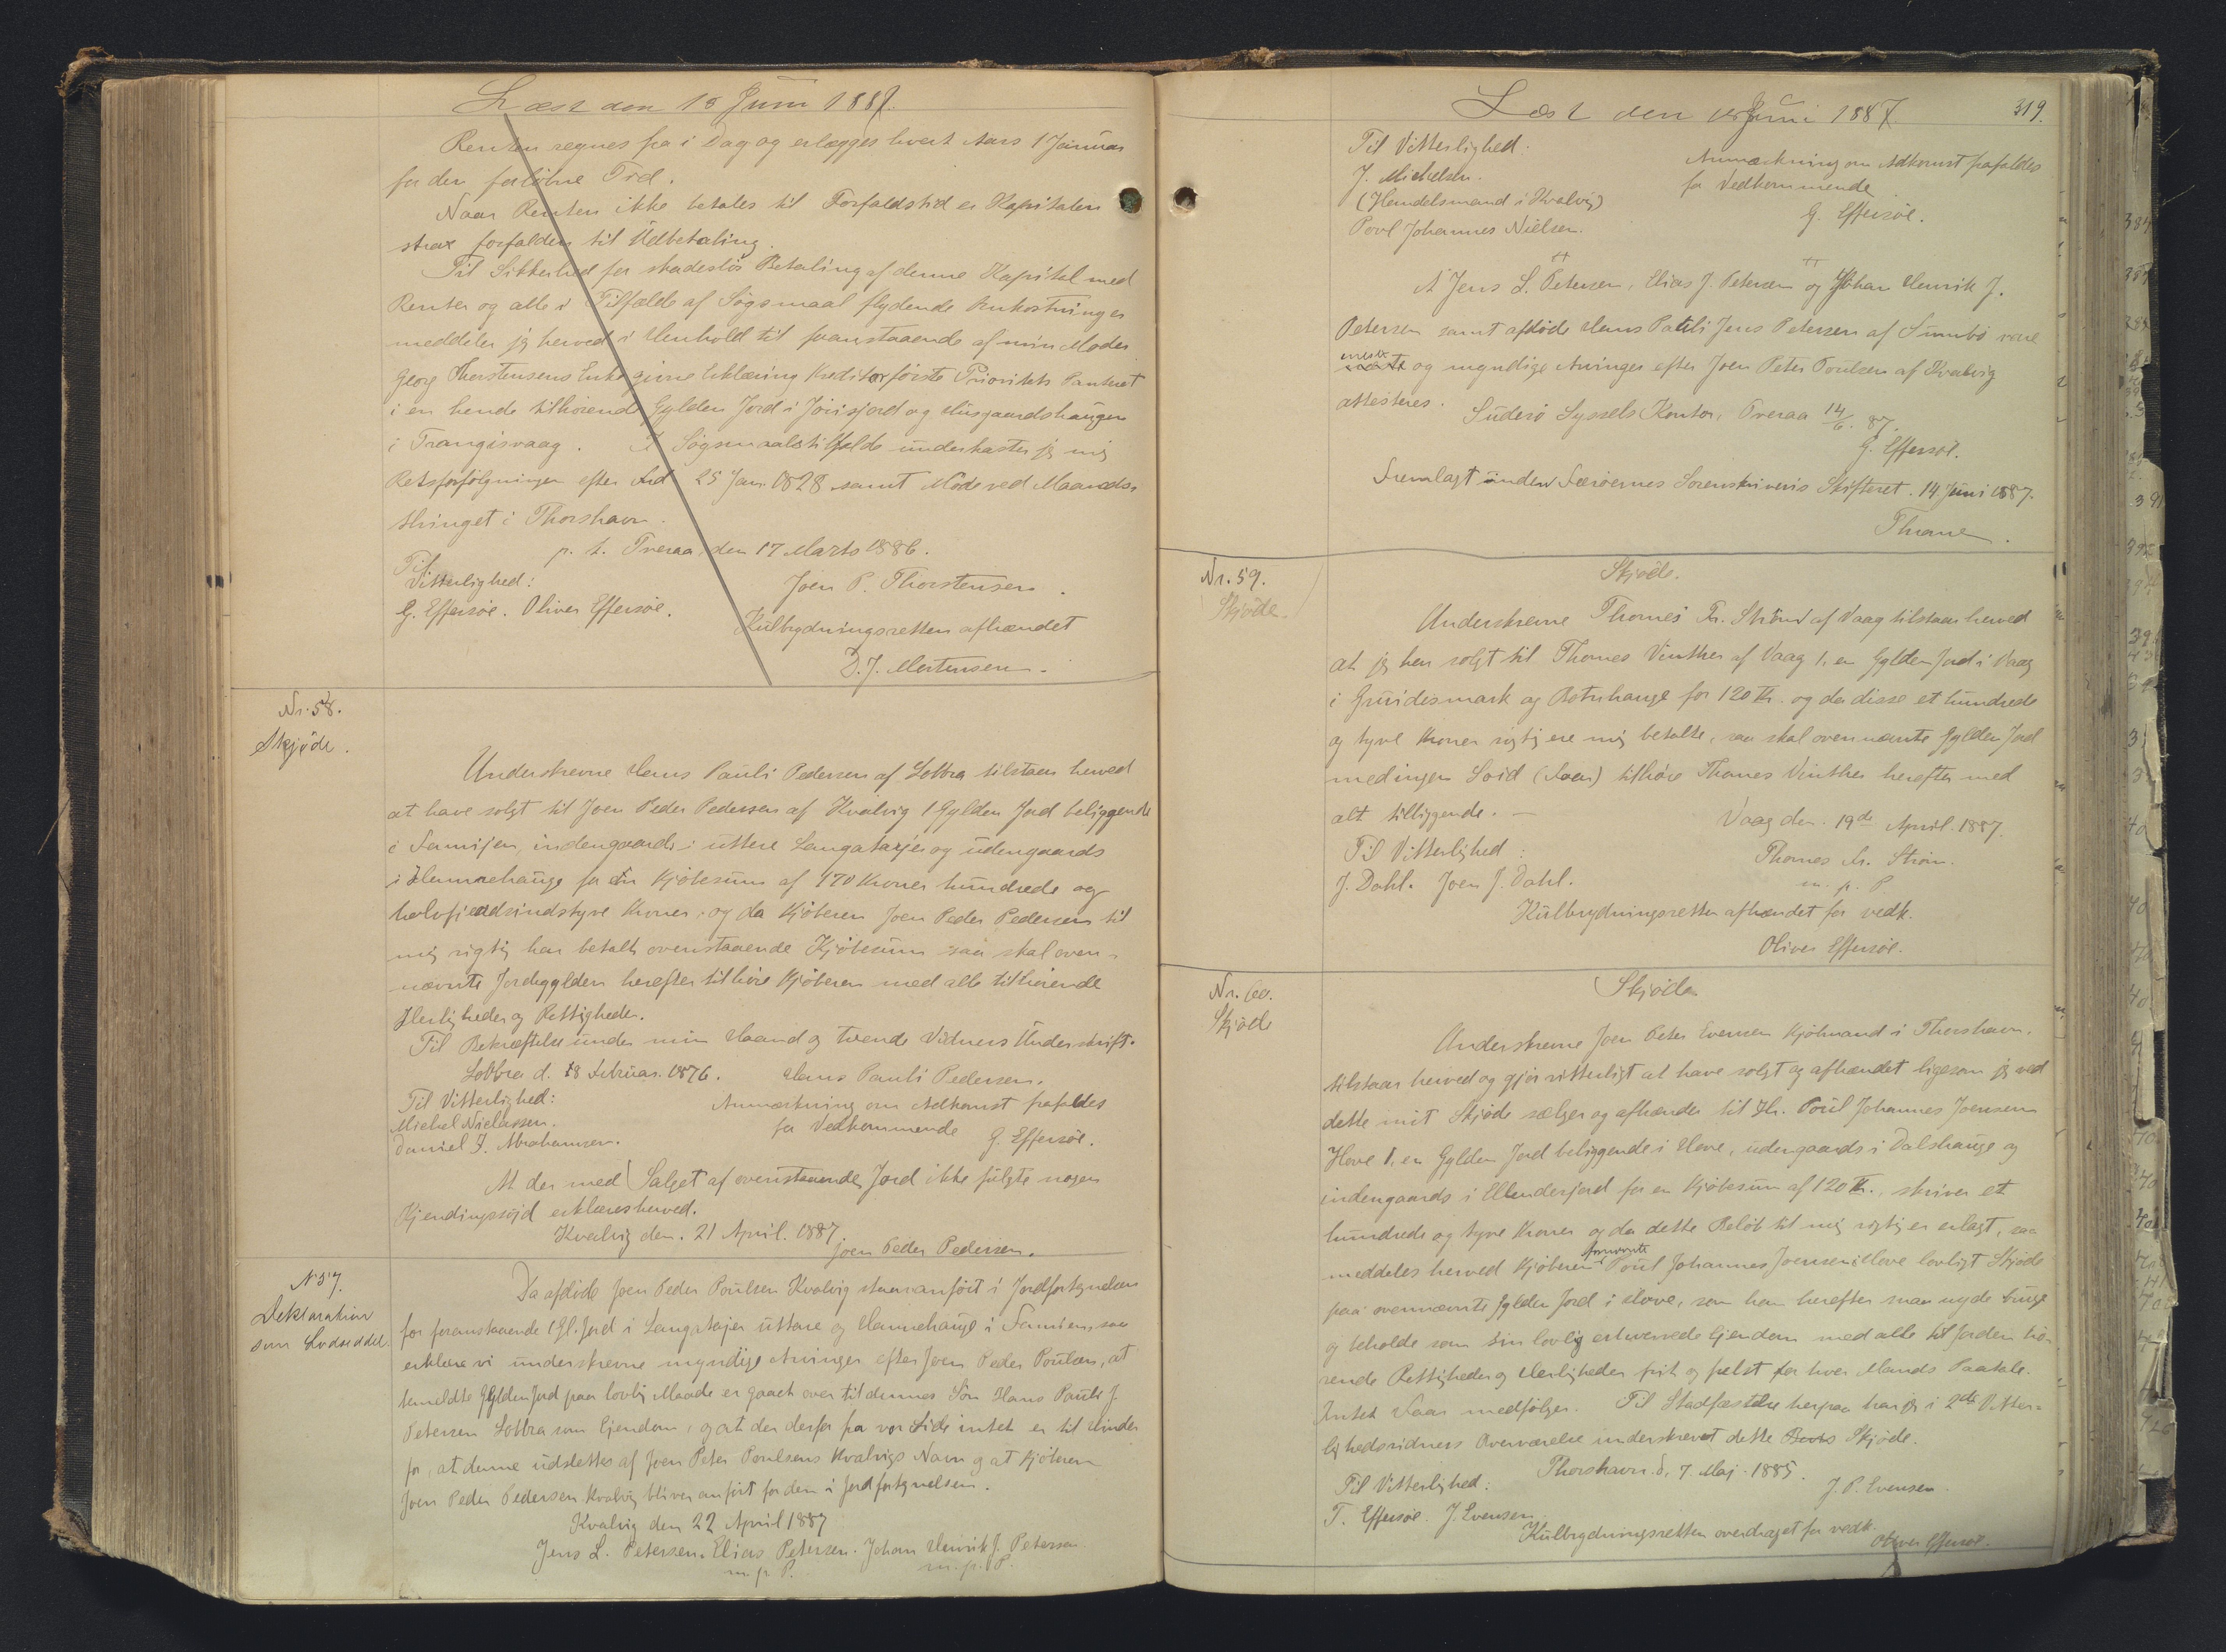 Læst den 15 Juni 1887.
Renten regnes fra i Dag og erlægges hvert Aars 1 Januar
for den forløbne Tid.
Naar Renten ikke betales til Forfaldstid er Kapitalen
strax forfalden til Udbetaling.
Til Sikkerhed for skadesløs Betaling af denne Kapital med
Renter og alle i Tilfælde af Søgsmaal flydende Omkostninger
meddeler jeg herved i Henhold til foranstaaende af min Moder
Georg Thorstensens Enke givne Erklæring Kreditor første Prioritets Panteret
i en hende tilhørende Gylden Jord i Jørisjord og Husgaardshaugen
i Trangisvaag. I Søgsmaalstilfælde underkaster jeg mig
Retsforfølgningen efter Frd 25 Jan. 1828 samt Møde ved Maaneds-
thinget i Thorshavn.
p. t. Tveraa, den 17 Marts 1886.
Til
Vitterlighed:
Joen P. Thorstensen.
G. Effersøe. Oliver Effersøe.
Kulbrydningsretten afhændet
D. J. Mortensen.
Nr. 58.
Skjøde.
Underskrevne Hans Pauli Pedersen af Lobbra tilstaar herved
at have solgt til Joen Peder Pedersen af Kvalvig 1 Gylden Jord beliggende
i Famijen, indengaards i uttere Langatarjer og udengaards
i Hamrehauge for en Kjøbesum af 170 Kroner hundrede og
halvfjerdsindstyve Kroner, og da Kjøberen Joen Peder Pedersen til
mig rigtig har betalt ovenstaaende Kjøbesum saa skal oven-
nævnte Jordegylden herefter tilhøre Kjøberen med alle tilhørende
Herligheder og Rettigheder.
Til Bekræftelse under min Haand og tvende Vidners Underskrift.
Lobbra d. 18 Februar. 1876. Hans Pauli Pedersen.
Til Vitterlighed:
Michel Niclassen.
Daniel J. Abrahamsen.
Anmærkning om Adkomst frafaldes
for Vedkommende G. Effersøe.
At der med Salget af ovenstaaende Jord ikke fulgte nogen
Kjendingssøjd erklæres herved.
Kvalvig den. 21 April. 1887.
Joen Peder Pedersen.
N 57.
Deklaration
som Lodseddel.
Da afdøde Joen Peder Poulsen Kvalvig staar anført i Jordfortegnelsen
for foranstaaende 1 Gl. Jord i Langatajer uttare og Hamrehauge i Famien, saa
erklære vi underskrevne myndige Arvinger efter Joen Peder Poulsen, at
bemeldte Gylden Jord paa lovlig Maade er gaaet over til dennes Søn Hans Pauli J.
Petersen Lobbra som Ejendom, og at der derfor fra vor Side intet er til Hinder
for, at denne udslettes af Joen Peter Poulsens Kvalvigs Navn og at Kjøberen
Joen Peder Pedersen Kvalvig bliver anført for den i Jordfortegnelsen.
Kvalvig den 22 April 1887
Jens L. Petersen. Elias Petersen. Johan Henrik J. Petersen
m. p. P. m. p. P.
Læst den 15 Juni 1887. 319.
Til Vitterlighed:
J. Michelsen.
(Handelsmand i Kvalvig)
Povl Johannes Nielsen.
Anmærkning om Adkomst frafaldes
for Vedkommende
G. Effersøe.
At Jens L. Petersen, Elias J. Petersen og Johan Henrik J.
Petersen samt afdøde Hans Pauli Jens Petersen af Sumbø vare
næste og myndige Arvinger efter Joen Peter Poulsen af Kvalvig
attesteres.
Suderø Syssels Kontor, Tveraa 14/6. 87.
G. Effersøe.
Fremlagt under Færøernes Sorenskriveris Skifteret. 14 Juni 1887.
Thrane.
Nr. 59.
Skjøde.
Skjøde.
Underskrevne Thomes Fr. Strøm af Vaag tilstaar herved
at jeg har solgt til Thomes Vinther af Vaag 1, en Gylden Jord i Vaag
i Gruidesmark og Botnhauge for 120 Kr. og da disse et hundrede
og tyve Kroner rigtig ere mig betalte, saa skal ovennævnte Gylden Jord
med ingen Soid (Faar) tilhøre Thomes Vinther herefter med
alt tilliggende. —
Vaag den. 19de April. 1887.
Til Vitterlighed:
Thomes Fr. Strøm.
J. Dahl. Joen J. Dahl.
m. p. P.
Kulbrydningsretten afhændet for vedk.
Oliver Effersøe.
Nr. 60.
Skjøde
Skjøde
Underskrevne Joen Peter Evensen Kjøbmand i Thorshavn,
tilstaar herved og gjør vitterligt at have solgt og afhændet ligesom jeg ved
dette mit Skjøde sælger og afhænder til Hr. Poul Johannes Joensen
Hove 1, en Gylden Jord beliggende i Hove, udengaards i Dalshauge og
indengaards i Ellendesjord for en Kjøbesum af 120 Kr., skriver et
hundrede og tyve Kroner og da dette Beløb til mig rigtig er erlagt, saa
meddeles herved Kjøberen fornævnte Poul Johannes Joensen i Hove lovligt Skjøde
paa ovennævnte Gylden Jord i Hove, som han herefter maa nyde bruge
og beholde som sin lovlig erhvervede Ejendom med alle til Jorden hø-
rende Rettigheder og Herligheder frit og frelst for hver Mands Paatale.
Intet Faar medfølger. Til Stadfæstelse herpaa har jeg i 2de Vitter-
lighedsvidners Overværelse underskrevet dette Skjøde.
Thorshavn d. 7 Maj. 1885.
Til Vitterlighed:
J. P. Evensen.
T. Effersøe. J. Evensen.
Kulbrydningsretten overdraget for vedk.
Oliver Effersøe.